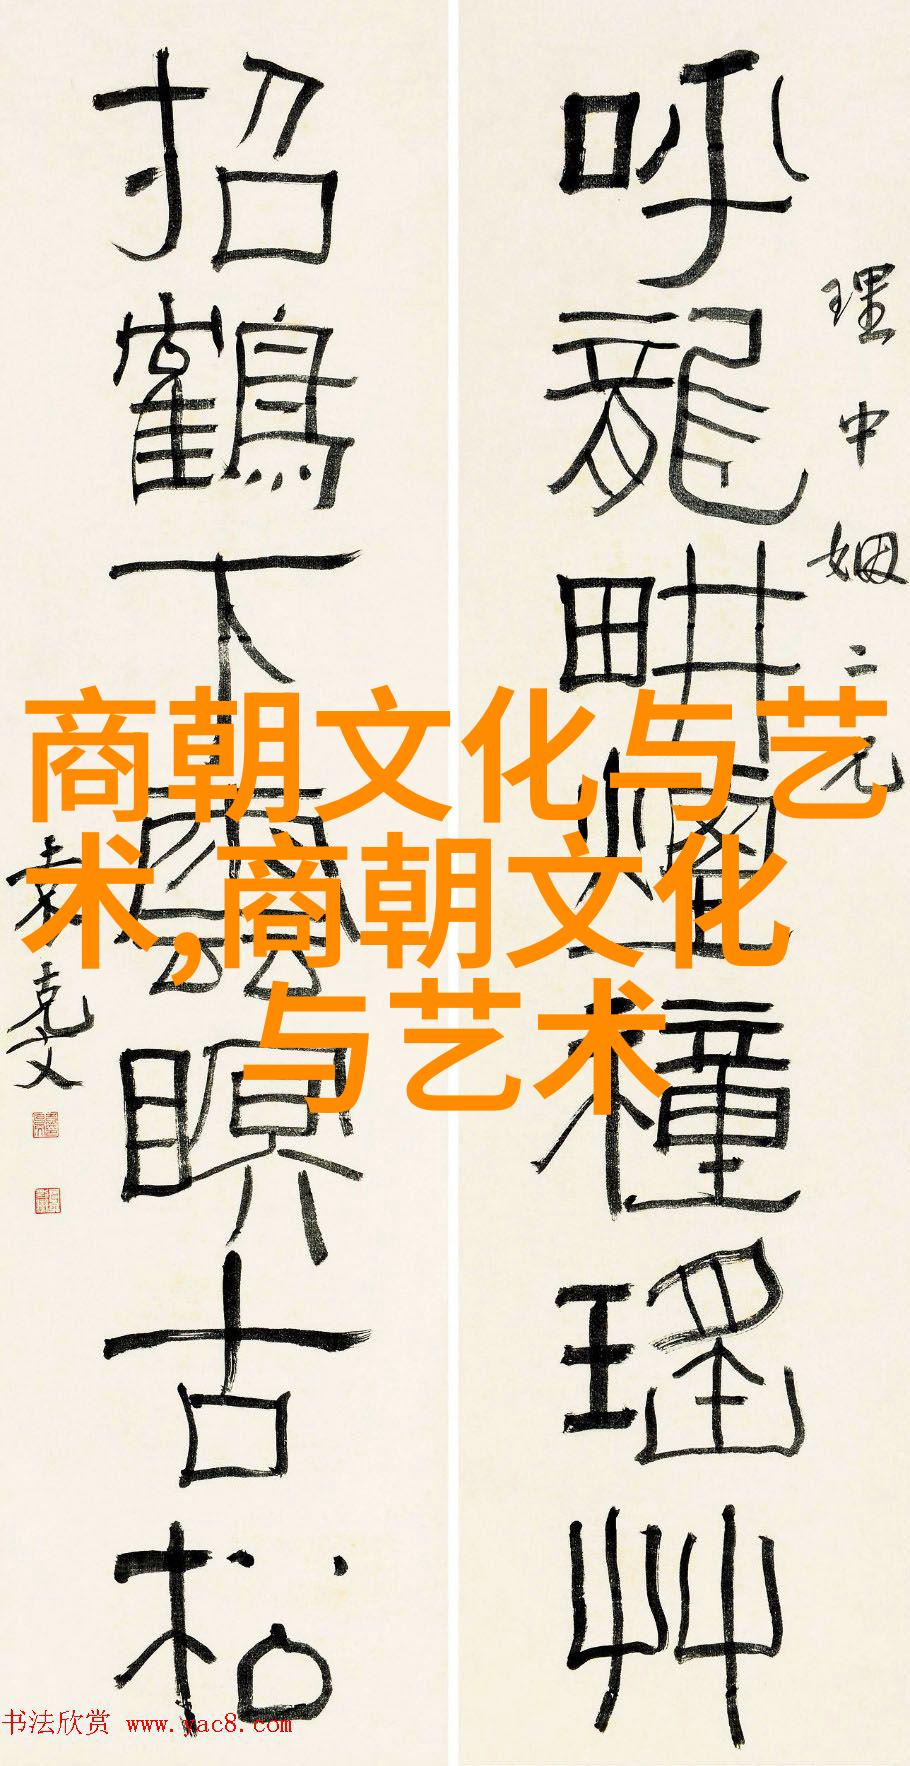 商朝文化与艺
术,商朝文化
与艺术
理中姻二兄
呼龍畊煙種瑤艸
招鶴下瞑古松
袁克文
书法欣赏 www.yac8.com